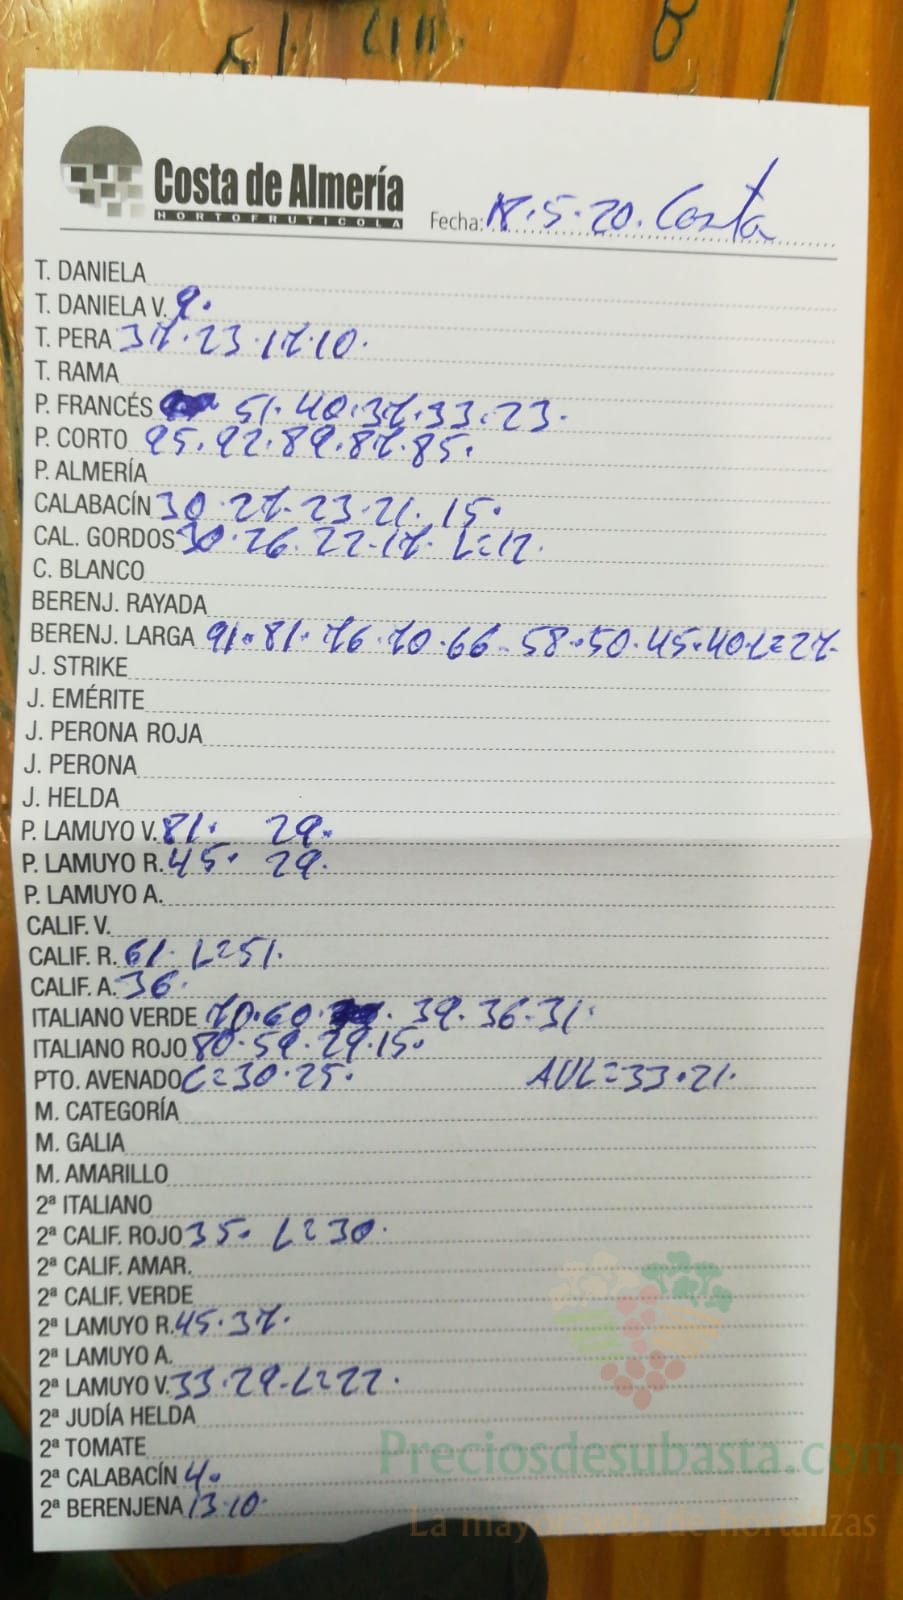 Costa de Almería
HORTOFRUTICOLA
Fecha: 18.5.20. Costa
T. DANIELA
T. DANIELA V. 9.
T. PERA 37.23.17.10.
T. RAMA
P. FRANCÉS 51.40.37.33.23.
P. CORTO 95.92.89.87.85.
P. ALMERÍA
CALABACÍN 30.27.23.21.15.
CAL. GORDOS 30.26.22.17. L=12.
C. BLANCO
BERENJ. RAYADA
BERENJ. LARGA 91.81.76.70.66.58.50.45.40.L=27.
J. STRIKE
J. EMÉRITE
J. PERONA ROJA
J. PERONA
J. HELDA
P. LAMUYO V. 81. 29.
P. LAMUYO R. 45. 29.
P. LAMUYO A.
CALIF. V.
CALIF. R. 61. L=51.
CALIF. A. 36.
ITALIANO VERDE 70.60. 39.36.31.
ITALIANO ROJO 80.59.29.15.
PTO. AVENADO C=30.25. AUL=33.21.
M. CATEGORÍA
M. GALIA
M. AMARILLO
2ª ITALIANO
2ª CALIF. ROJO 35. L=30.
2ª CALIF. AMAR.
2ª CALIF. VERDE
2ª LAMUYO R. 45.37.
2ª LAMUYO A.
2ª LAMUYO V. 33.29.L=22.
2ª JUDÍA HELDA
2ª TOMATE
2ª CALABACÍN 4.
2ª BERENJENA 13.10.
Preciosdesubasta.com
La mayor web de hortalizas